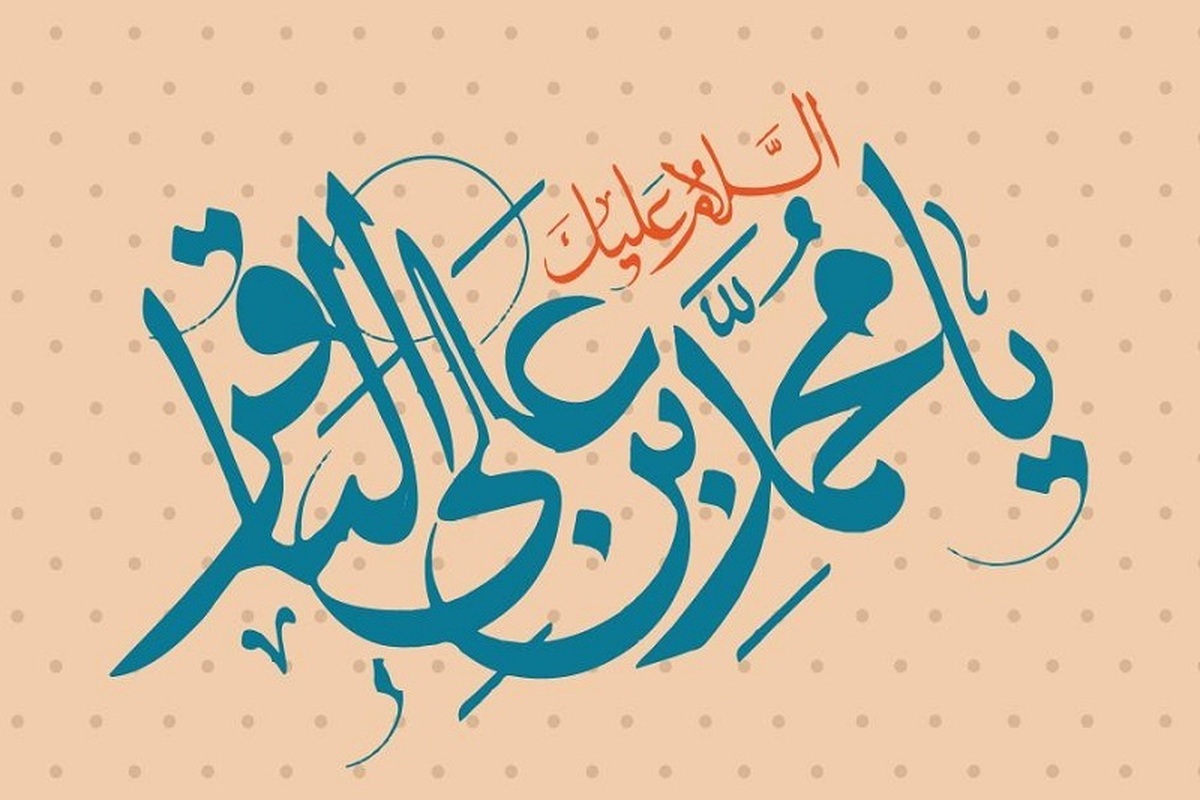 السَّلامُ عليك
يا محمَّدُ بنَ عليٍّ الباقر